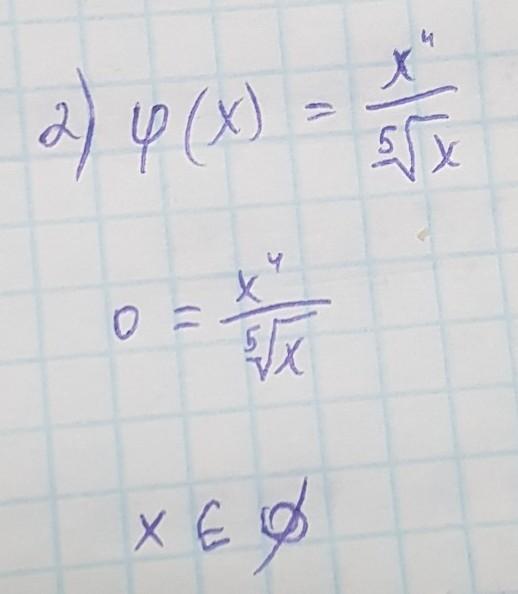 2) φ(x) = x⁴ / ⁵√x
0 = x⁴ / ⁵√x
x ∈ ∅